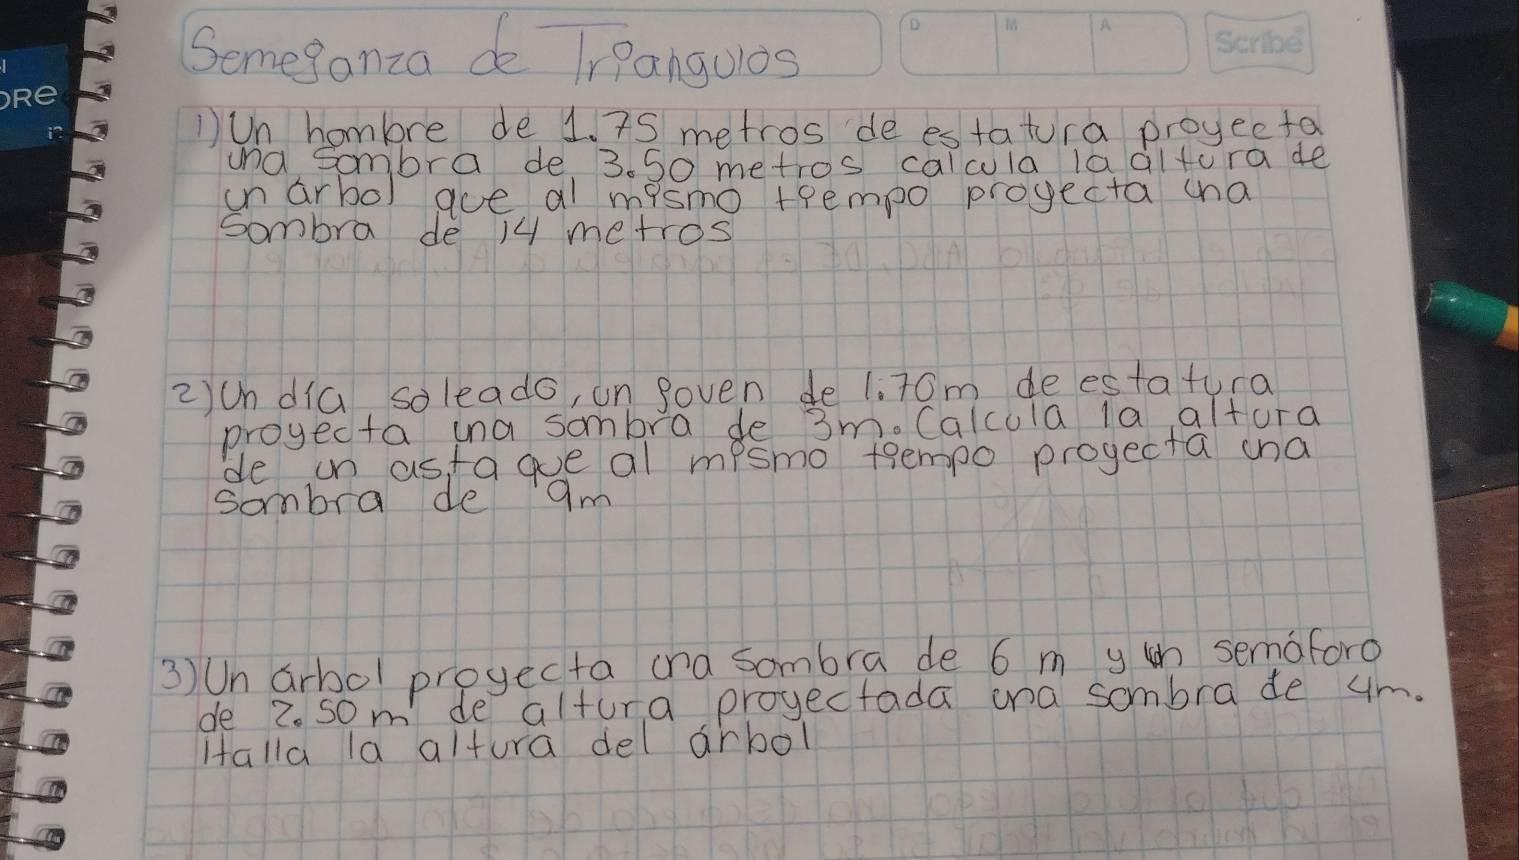 Semejanza de Triangulos
D M A
Scribe
ORe
1) Un hombre de 1.75 metros de estatura proyecta
una sombra de 3.50 metros calcula la altura de
un árbol que al mismo tiempo proyecta una
sombra de 14 metros
2) Un día soleado, un joven de 1.70m de estatura
proyecta una sombra de 3m. Calcula la altura
de un asta que al mismo tiempo proyecta una
sombra de 9m
3) Un árbol proyecta una sombra de 6 m y un semáforo
de 2.50 m de altura proyectada una sombra de 4m.
Halla la altura del árbol